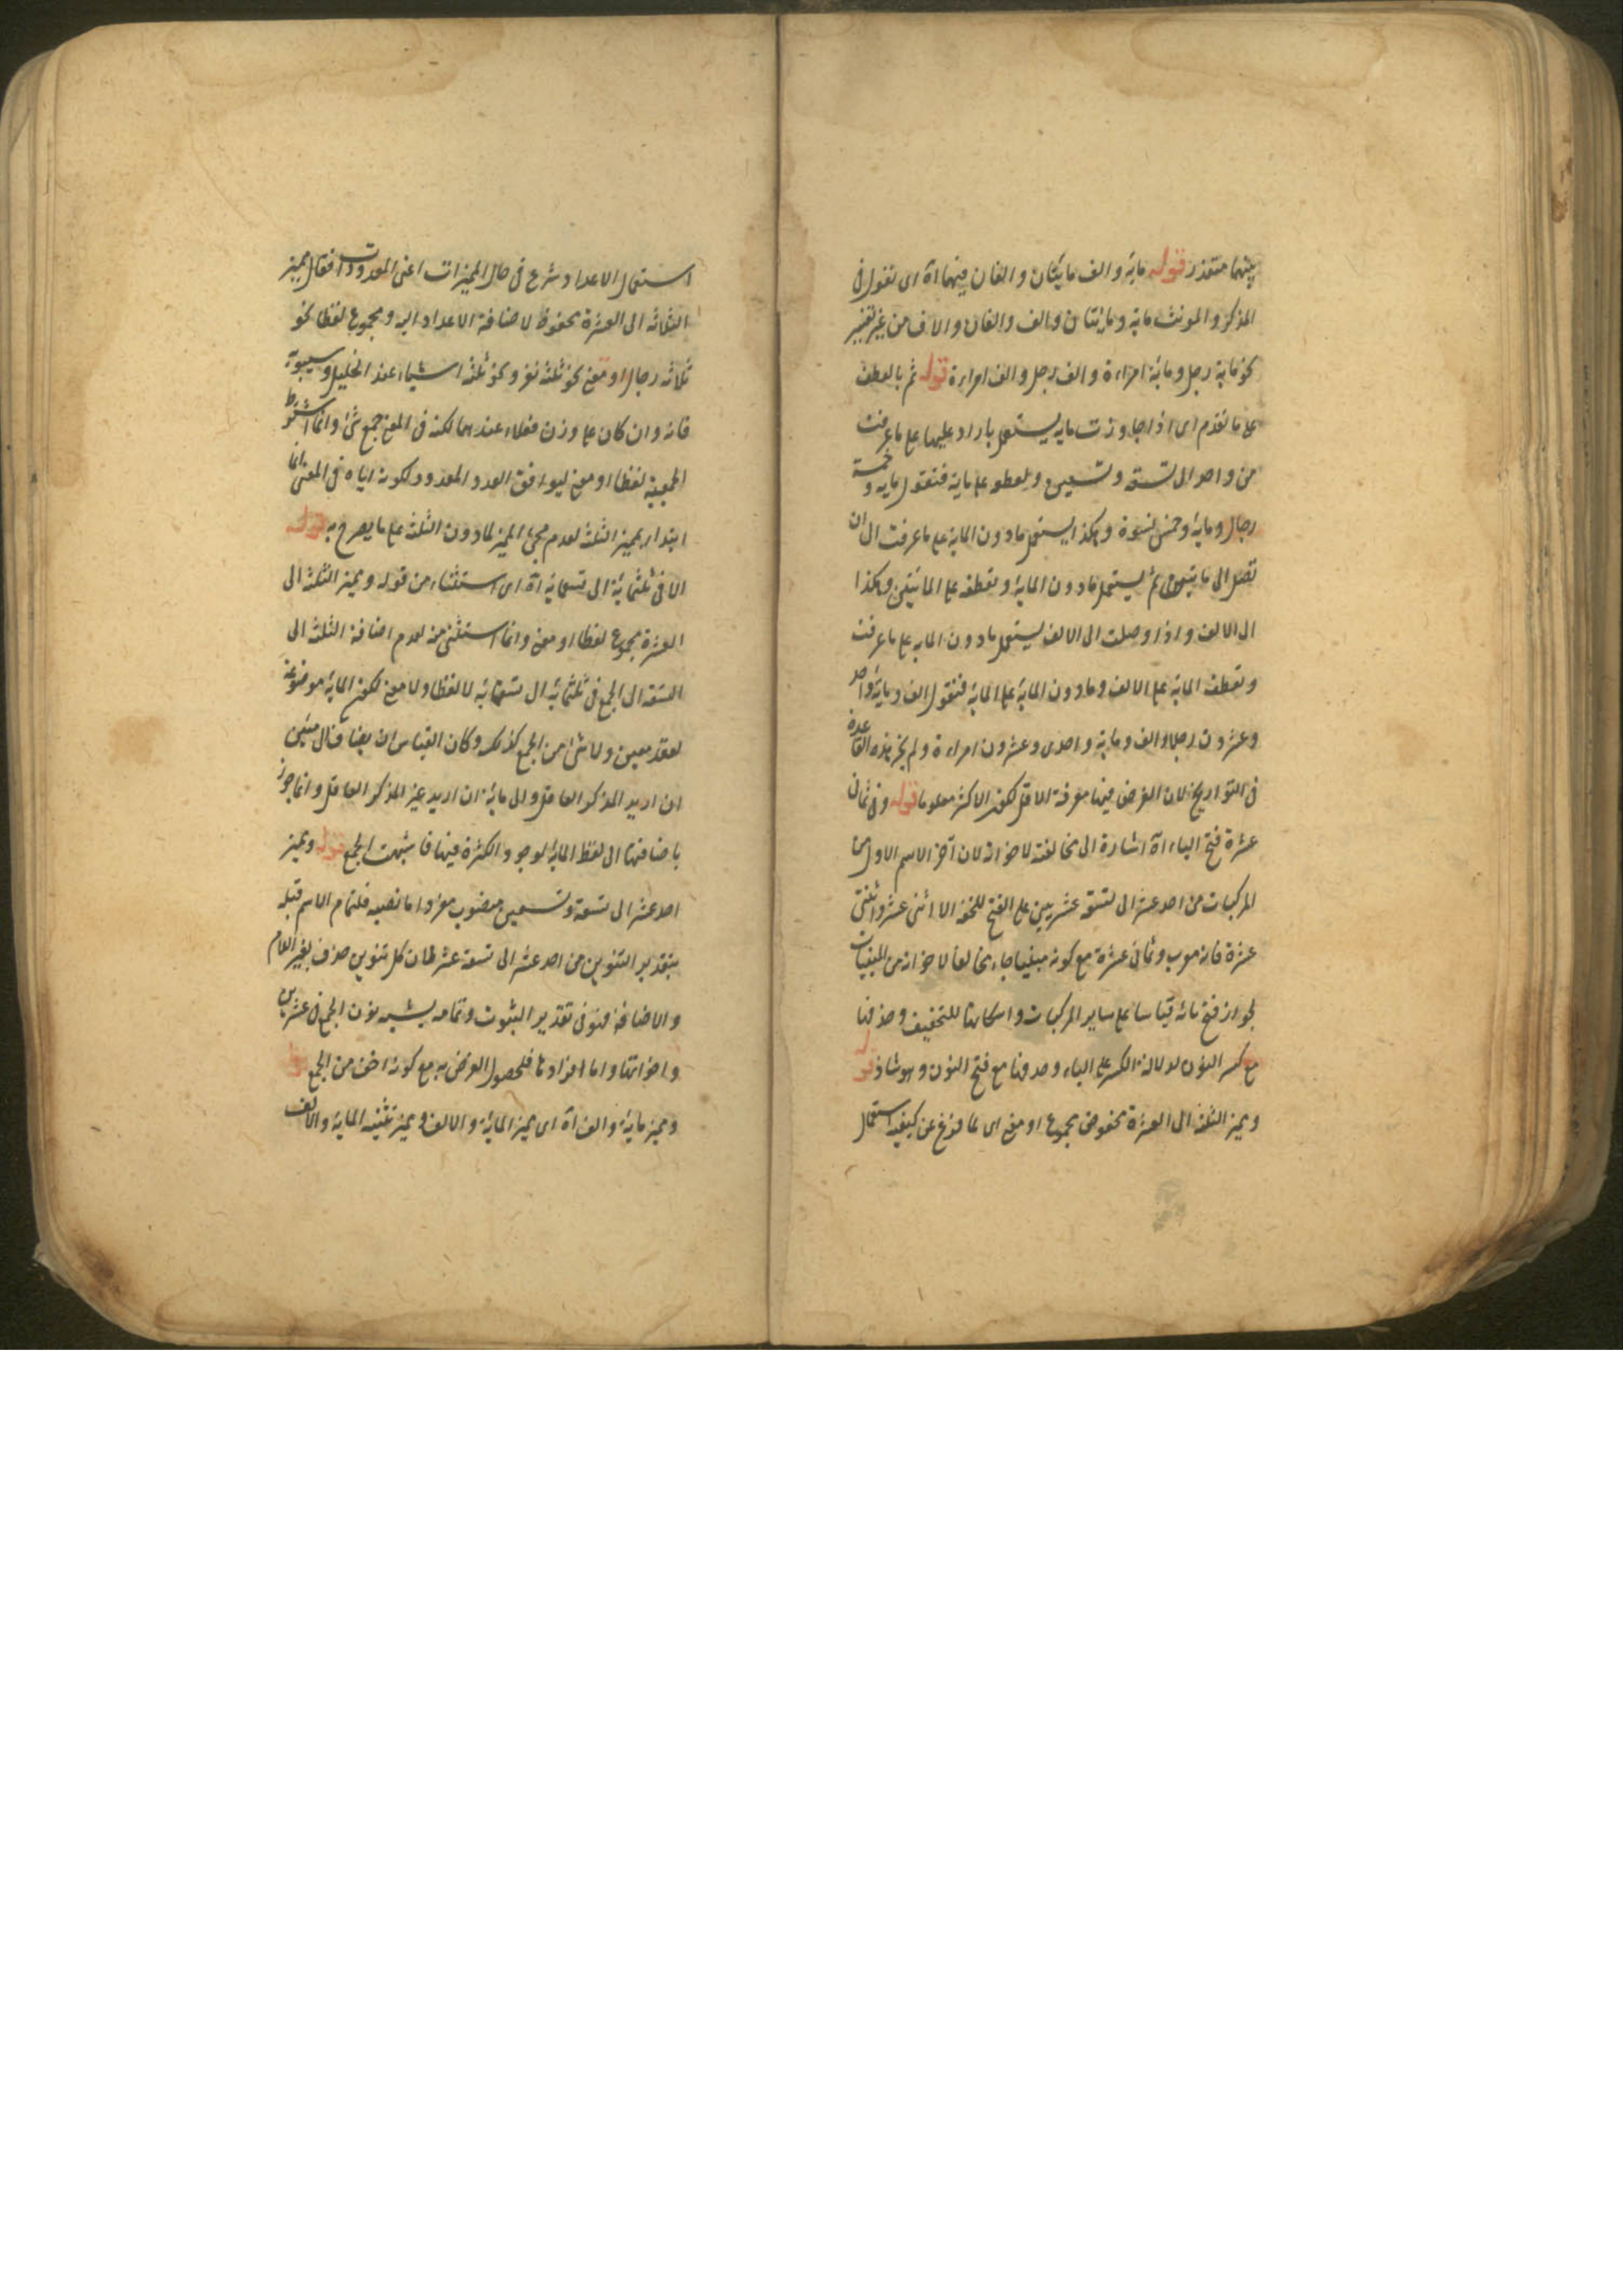 بينهما متعذر قوله ماية والف مايتان والفان فيهما آه اى تقول فى
المذكر والمونث ماية ومايتان والف والفان والاف من غير تغيير
نحو ماية رجل وماية امراءة والف رجل والف امراءة قوله ثم بالعطف
على ما تقدم اى اذا جاوزت ماية يستعمل ما زاد عليها على ما عرفت
من واحد الى تسعة وتسعين وتعطف على ماية فتقول ماية وخمسة
رجال وماية وخمس نسوة وهكذا يستعمل ما دون الماية على ما عرفت الى ان
تصل الى مايتين ثم يستعمل ما دون الماية وتعطفه على المائيتين وهكذا
الى الالف واذا وصلت الى الالف يستعمل ما دون الماية على ما عرفت
وتعطف الماية على الالف وما دون الماية على الماية فتقول الف وماية واحد
وعشرون رجلا والف وماية واحدى وعشرون امراءة ولم يجز هذه القاعدة
فى التواريخ لان الغرض فيها معرفة الاقل لكون الاكثر معلوما قوله وفى ثمانى
عشرة فتح الياء آه اشارة الى مخالفته لاخواته لان آخر الاسم الاول من
المركبات من احد عشر الى تسعة عشر يبنى على الفتح للخفة الا اثنى عشر واثنتى
عشرة فانه معرب وثمانى عشرة مع كونه مبنيا جاء مخالفا لاخواته من المبنيات
لجواز فتح يائه قياسا على ساير المركبات واسكانها للتخفيف وحذفها
مع كسر النون لدلالة الكسر على الياء وحذفها مع فتح النون وهو شاذ قوله
ومميز الثلثة الى العشرة مخفوض مجموع او معنى اى لما فرغ عن كيفية استعمال
استعمال الاعداد شرع فى حال المميزات اعنى المعدودات فقال مميز
الثلاثه الى العشرة مخفوظ لاضافة الاعداد اليه ومجموع لفظا نحو
ثلاثه رجال او معنى نحو ثلثة نفر ونحو ثلثة اشياء عند الخليل وسيبويه
فانه وان كان على وزن فعلاء عندهما لكنه فى المعنى جمع شئ وانما اشترط
الجمعية لفظا او معنى ليوافق العدد المعدود لكونه اياه فى المعنى انما
ابتدا بمميز الثلثة لعدم مجئ المميز لما دون الثلثة على ما يصرح به قوله
الا فى ثلثماية الى تسعماية آه اى استثناء من قوله ومميز الثلثة الى
العشرة مجموع لفظا او معنى وانما استثنى منه لعدم اضافة الثلثة الى
التسعة الى الجمع فى ثلثماية الى تسعماية لا لفظا ولا معنى لكون الماية موضوعة
لعقد معين ولا شئ من الجمع كذلك وكان القياس ان يضاف الى مئين
ان اريد المذكر العاقل والى مائة ان اريد غير المذكر العاقل وانما جوز
باضافتها الى لفظ الماية لوجود الكثرة فيها فاشبهت الجمع قوله ومميز
احد عشر الى تسعة وتسعين منصوب مفرد اما نصبه فلتمام الاسم قبله
بتقدير التنوين من احد عشر الى تسعة عشر لمان كل تنوين حذف بغير اللام
والاضافة فهو فى تقدير الثبوت وتمامه بشبه نون الجمع فى عشرين
واخواتها واما افرادها فلحصول الغرض به مع كونه اخف من الجمع قوله
ومميز ماية والف آه اى مميز الماية والالف ومميز تثنية الماية والالف